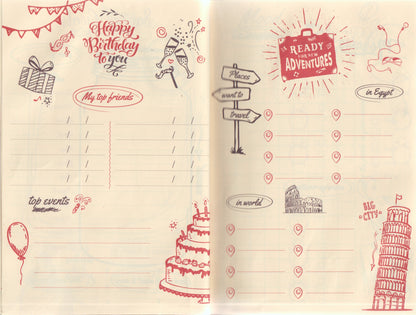 Happy
Birthday
to you
My top friends
/ / / /
/ / / /
/ / / /
/ / / /
top events
READY
FOR NEW
ADVENTURES
Places
want to
travel
in Egypt
in world
BIG
CITY